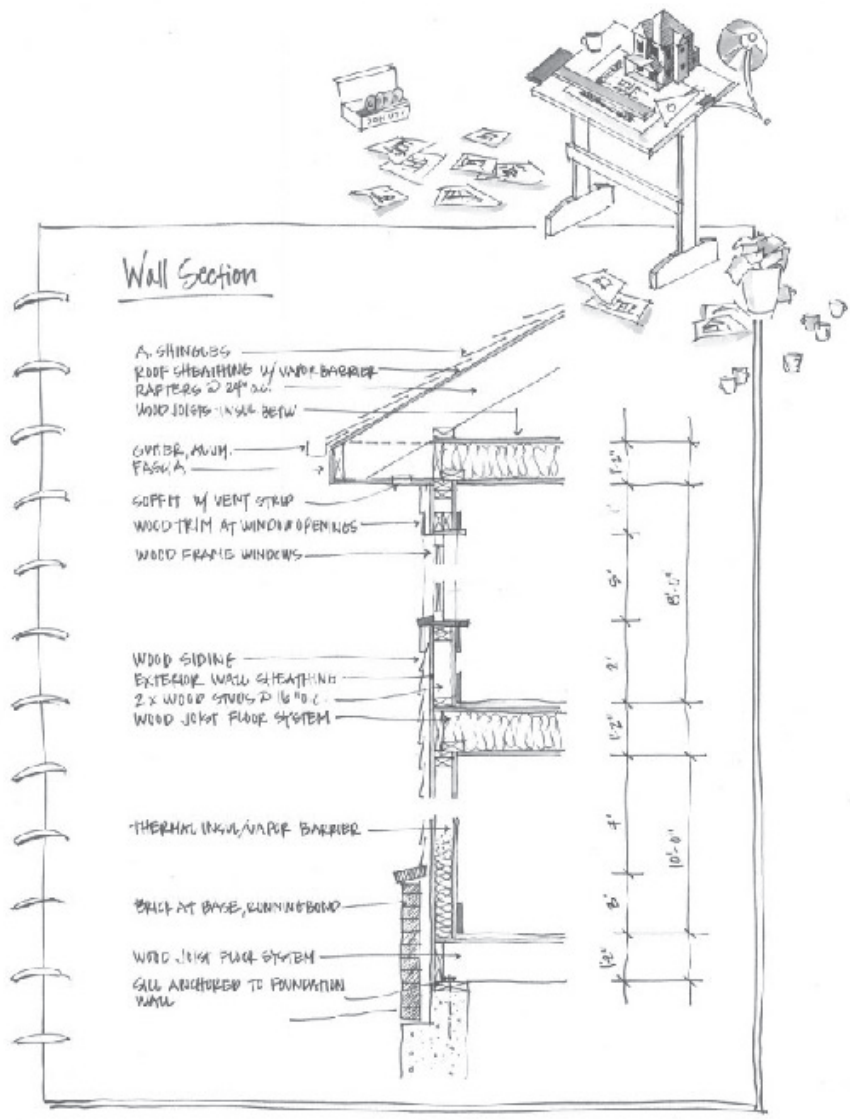 DONUTS
Wall Section
A. SHINGLES
ROOF SHEATHING W/ VAPOR BARRIER
RAFTERS @ 24" O.C.
WOOD JOISTS - INSUL BELOW
GUTTER, ALUM.
FASCIA
SOFFIT W/ VENT STRIP
WOOD TRIM AT WINDOW OPENINGS
WOOD FRAME WINDOWS
WOOD SIDING
EXTERIOR WALL SHEATHING
2 x WOOD STUDS @ 16" O.C.
WOOD JOIST FLOOR SYSTEM
THERMAL INSUL/VAPOR BARRIER
BRICK AT BASE, RUNNING BOND
WOOD JOIST FLOOR SYSTEM
SILL ANCHORED TO FOUNDATION
WALL
1'-2"
1'
5'
8'-0"
2'
1'-2"
10'-0"
1'-2"